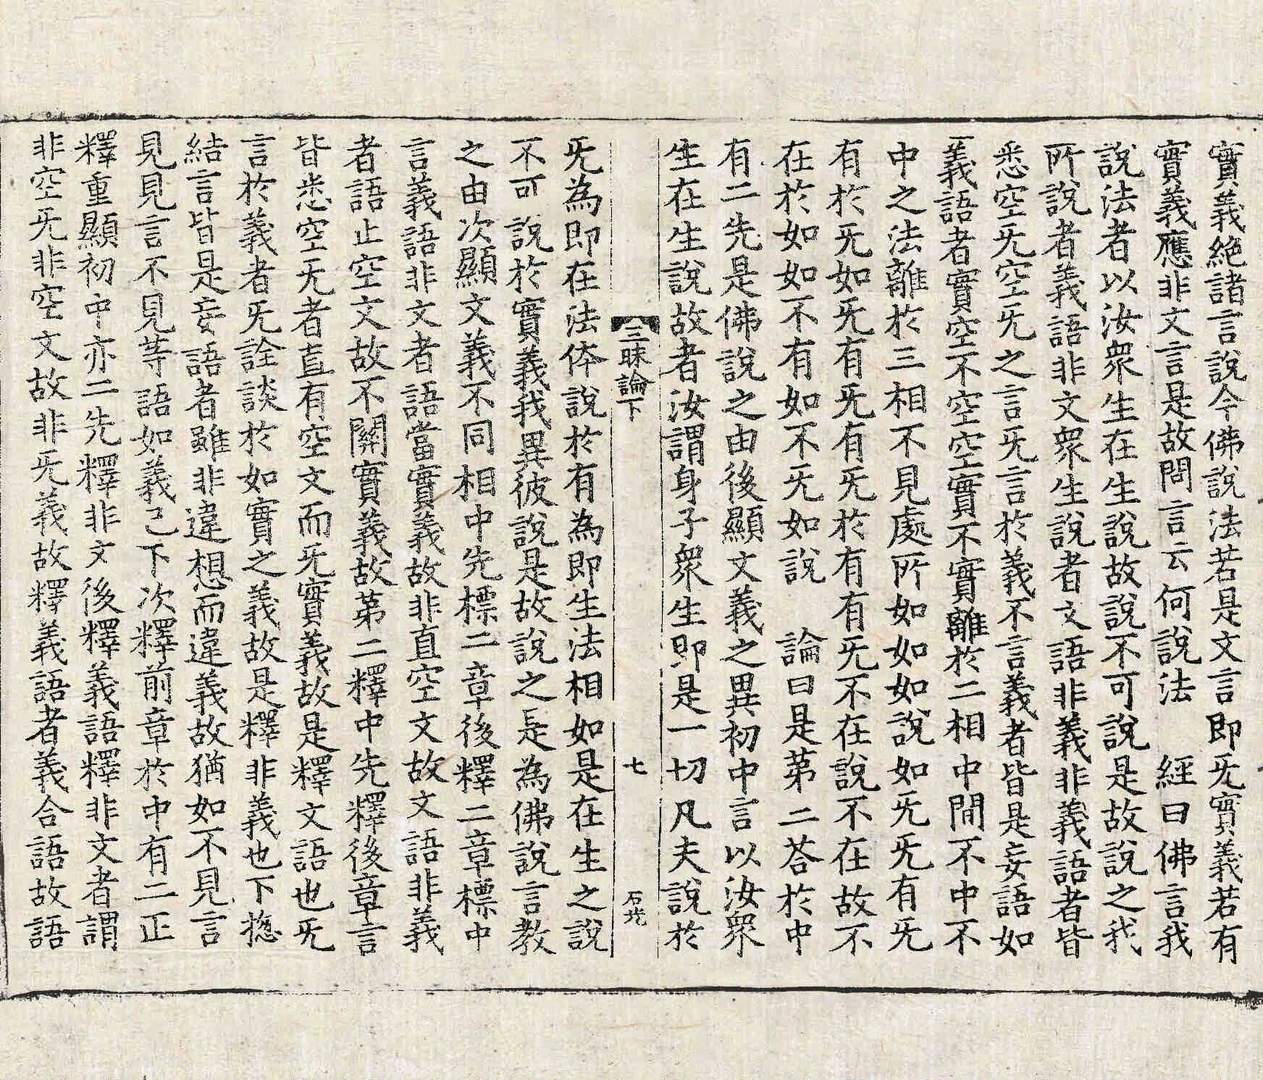 實義絶諸言說今佛說法若是文言即旡實義若有
實義應非文言是故問言云何說法　經曰佛言我
說法者以汝衆生在生說故說不可說是故說之我
所說者義語非文衆生說者文語非義非義語者皆
悉空旡空旡之言旡言於義不言義者皆是妄語如
義語者實空不空空實不實離於二相中間不中不
中之法離於三相不見處所如如如說如旡旡有旡
有於旡如旡有旡有旡於有有旡不在說不在故不
在於如如不有如不旡如說　論曰是第二荅於中
有二先是佛說之由後顯文義之異初中言以汝衆
生在生說故者汝謂身子衆生即是一切凡夫說於
三昧論下
七
旡為即在法体說於有為即生法相如是在生之說
不可說於實義我異彼說是故說之是為佛說言教
之由次顯文義不同相中先標二章後釋二章標中
言義語非文者語當實義故非直空文故文語非義
者語止空文故不關實義故第二釋中先釋後章言
皆悉空旡者直有空文而旡實義故是釋文語也旡
言於義者旡詮談於如實之義故是釋非義也下揔
結言皆是妄語者雖非違想而違義故猶如不見言
見見言不見䓁語如義已下次釋前章於中有二正
釋重顯初中亦二先釋非文後釋義語釋非文者謂
非空旡非空文故非旡義故釋義語者義合語故語